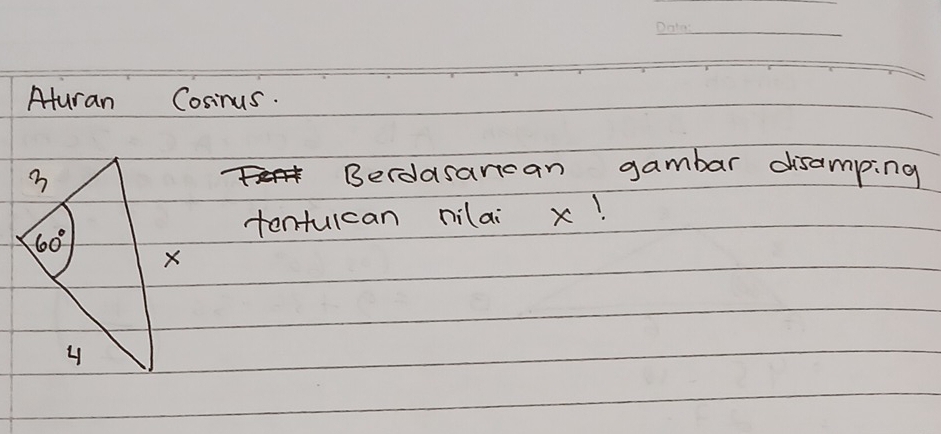 Data:
Aturan Cosinus.
Berdasarkan gambar disamping
tentukan nilai x!
3
60°
x
4